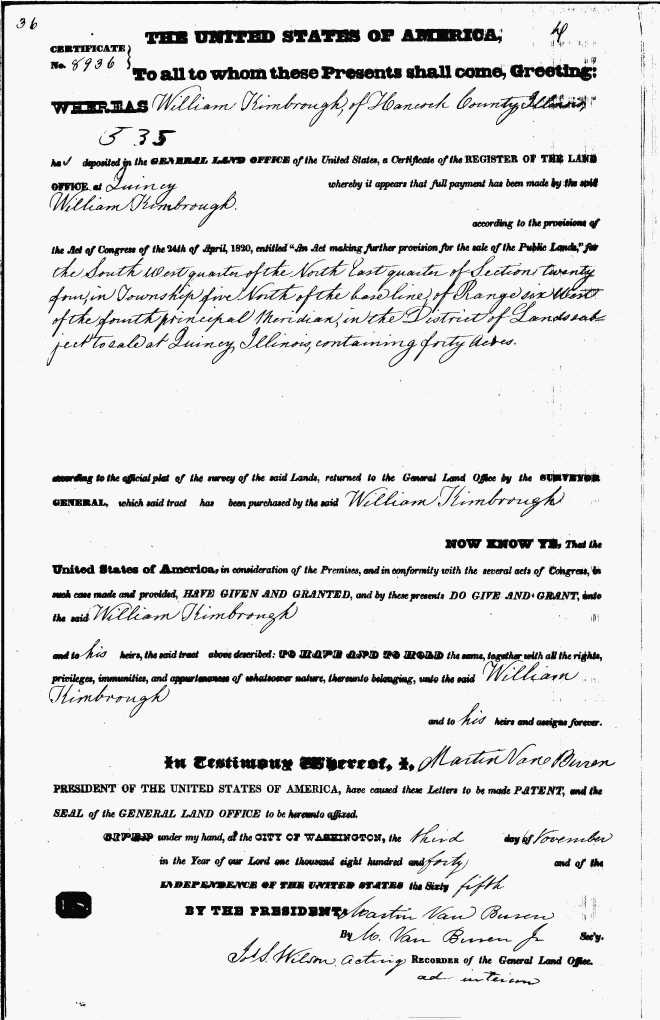 36
4
THE UNITED STATES OF AMERICA,
CERTIFICATE
No. 8936
To all to whom these Presents shall come, Greeting:
WHEREAS William Kimbrough, of Hancock County, Illinois,
535
has deposited in the GENERAL LAND OFFICE of the United States, a Certificate of the REGISTER OF THE LAND
OFFICE at Quincy whereby it appears that full payment has been made by the said
William Kimbrough.
according to the provisions of
the Act of Congress of the 24th of April, 1820, entitled "An Act making further provision for the sale of the Public Lands," for
the South West quarter of the North East quarter of Section twenty
four, in Township five North of the base line, of Range six West
of the fourth principal Meridian, in the District of Lands sub-
ject to sale at Quincy, Illinois, containing forty Acres.
according to the official plat of the survey of the said Lands, returned to the General Land Office by the SURVEYOR
GENERAL, which said tract has been purchased by the said William Kimbrough
NOW KNOW YE, That the
United States of America, in consideration of the Premises, and in conformity with the several acts of Congress, in
such case made and provided, HAVE GIVEN AND GRANTED, and by these presents DO GIVE AND GRANT, unto
the said William Kimbrough
and to his heirs, the said tract above described: TO HAVE AND TO HOLD the same, together with all the rights,
privileges, immunities, and appurtenances of whatsoever nature, thereunto belonging, unto the said William
Kimbrough
and to his heirs and assigns forever.
In Testimony Whereof, I, Martin Van Buren
PRESIDENT OF THE UNITED STATES OF AMERICA, have caused these Letters to be made PATENT, and the
SEAL of the GENERAL LAND OFFICE to be hereunto affixed.
GIVEN under my hand, at the CITY OF WASHINGTON, the third day of November
in the Year of our Lord one thousand eight hundred and forty and of the
INDEPENDENCE OF THE UNITED STATES the Sixty fifth
BY THE PRESIDENT: Martin Van Buren
By M. Van Buren Jr Sec'y.
Jos. S. Wilson acting RECORDER of the General Land Office.
ad interim